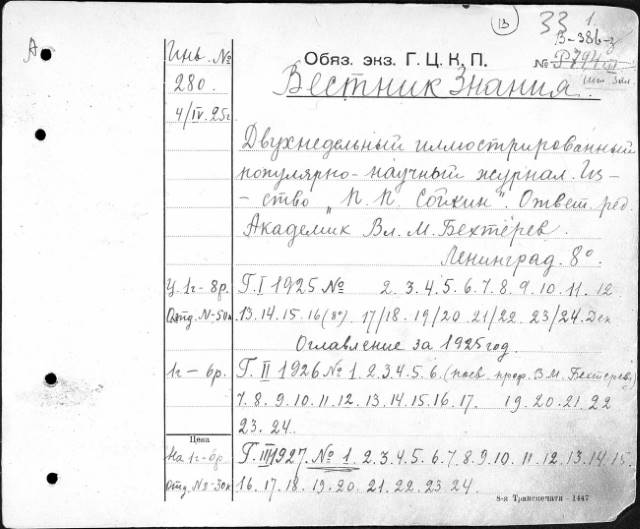 13 33 1.
А В-386-з
Инв. № Обяз. экз. Г. Ц. К. П. № Р794
280. Вестник Знания.
4/IV.25г.
Двухнедельный иллюстрированный
популярно-научный журнал. Из-
-ство „П. П. Сойкин". Ответ. ред.
Академик Вл. М. Бехтерев.
Ленинград. 8°.
Ц. 1г - 8р. Г. I 1925 № 2. 3. 4. 5. 6. 7. 8. 9. 10. 11. 12
Отд. N-50к 13. 14. 15. 16 (8°) 17/18. 19/20. 21/22. 23/24. Дек
Оглавление за 1925 год.
1г - 6р. Г. II 1926 № 1. 2. 3. 4. 5. 6. (посв. проф. В. М. Бехтерев.)
7. 8. 9. 10. 11. 12. 13. 14. 15. 16. 17. 19. 20. 21. 22
23. 24.
Цена
На 1г - 6р. Г. III 1927. № 1. 2. 3. 4. 5. 6. 7. 8. 9. 10. 11. 12. 13. 14. 15.
Отд. № - 30к 16. 17. 18. 19. 20. 21. 22. 23. 24.
8-я Транспечати - 1447